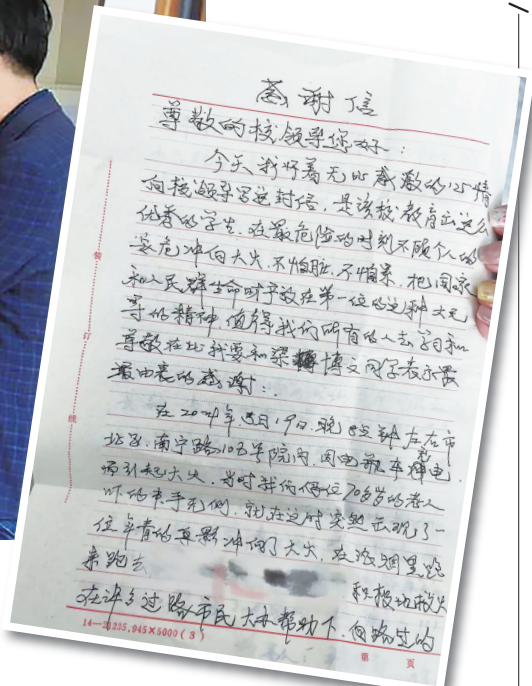 感谢信
尊敬的校领导您好：
今天我怀着无比感激的心情
向校领导写这封信，是该校教育出这么
优秀的学生，在最危险的时刻不顾个人的
安危冲向大火，不怕脏、不怕累，把国家
和人民群生命财产放在第一位的这种大无
畏的精神，值得我们所有的人去学习和
尊敬在此我要和梁博文同学表示最
最由衷的感谢！
在2024年 月19日晚 点钟左右市
北区，南宁路10五号院内，因电瓶车 电
源引起大火，当时我们俩位70岁的老人
吓的束手无侧，就在这时突然出现了一
位年青的身影冲向了大火，在浓烟里跑
来跑去 积极地救火
在许多过路市民大力帮助下，向路过的
装
订
线
14—21235.945×5000(3)
第 页